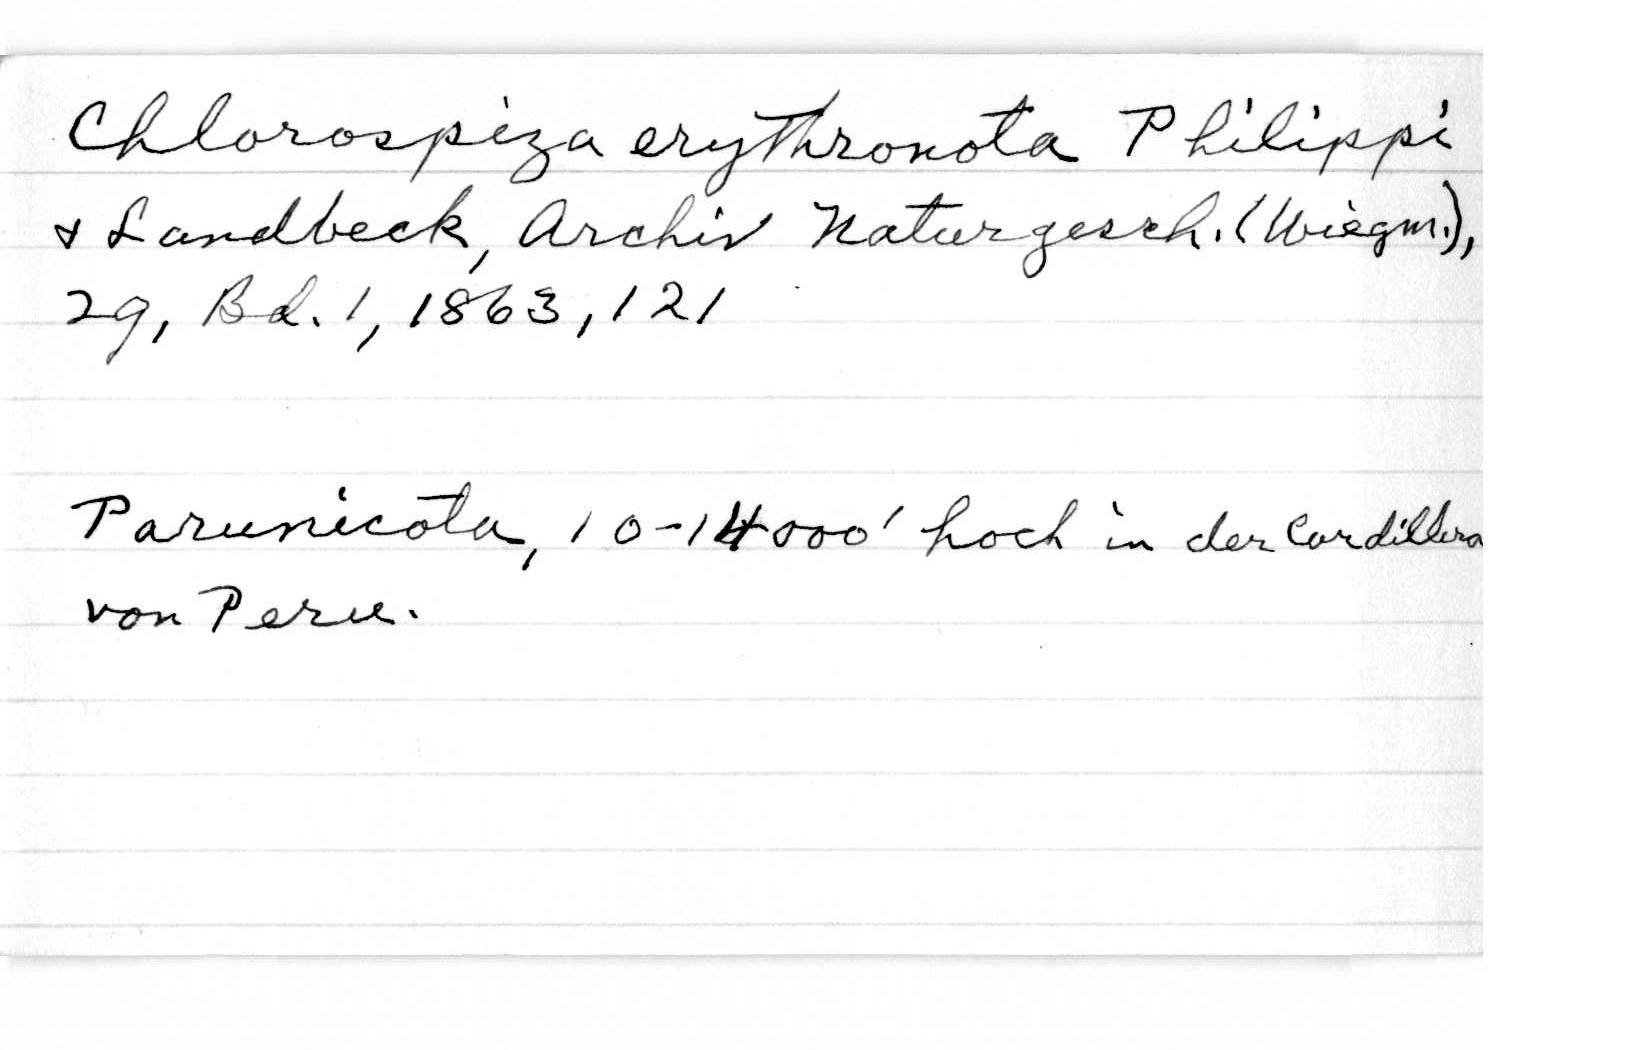 Chlorospiza erythronota Philippi
& Landbeck, Archiv Naturgesch. (Wiegm.),
29, Bd. 1, 1863, 121
Parunicota, 10-14000' hoch in der Cordillera
von Peru.